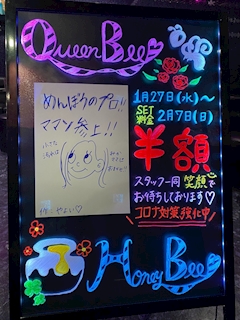 Queen Bee
めんぼうのプロ!!
ママン参上!!
1月27日(水)〜
SET料金 2月7日(日)
半額
スタッフ一同 笑顔で
お待ちしております♡
コロナ対策強化中
Honey Bee